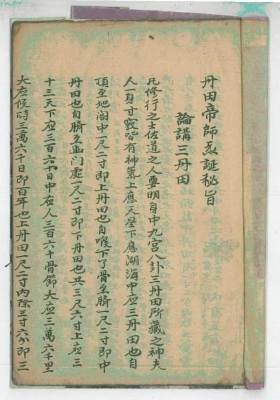 丹田帝師忌誕秘旨
論講三丹田
凡修行之士佐道之人要明身中九宮八卦三丹田所藏之神夫
人一身寸竅皆有神焉上應天星下應湖海中應三丹田也自
頂至地閣中一尺二寸即上丹田也自喉下了骨至臍一尺二寸即中
丹田也自臍至幽門處一尺二寸即下丹田也共三尺六寸上應三
十三天下應三百六十日中應人三百六十骨節大應三萬六千里
大應候時三萬六千日即百年也上丹田一尺二寸內除三寸六分即三